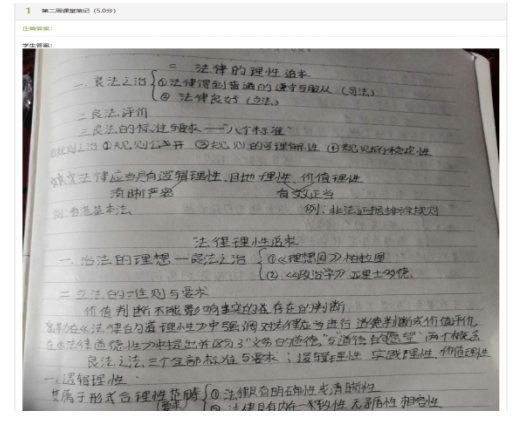 1 第二周课堂笔记（5.0分）
正确答案：
学生答案：
二 法律的理性追求
一、良法之治 ①法律得到普遍的遵守与服从（司法）
② 法律良好（立法）
二 良法评价
三 良法的标准与要求——"八个标准"
①规则公开 ③规则的可理解性 ④规则的稳定性
法律应当具有逻辑理性、目地理性、价值理性
清晰严密 有效正当
例：香港基本法 例：非法证据排除规则
法律理性追求
一、治法的理想—良法之治 ①《理想国》柏拉图
②《政治学》亚里士多德
二 立法的准则与要求
价值判断不能影响事实的存在的判断
良法之法 三个全部标准与要求：逻辑理性 实质理性 价值理性
一、逻辑理性：
其属于形式合理性范畴 ①法律具有明确性或清晰性
(要求) ②法律具有内在一致性 无矛盾性 相容性